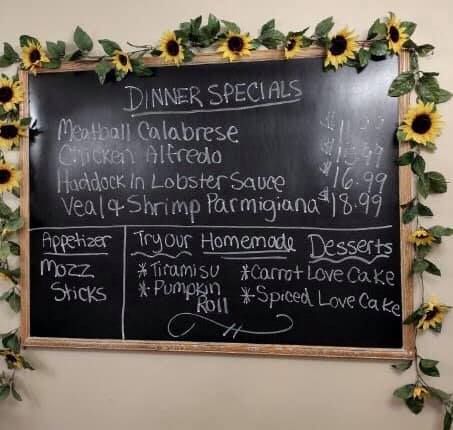 DINNER SPECIALS
Meatball Calabrese
Chicken Alfredo
Haddock In Lobster Sauce $16.99
Veal & Shrimp Parmigiana $18.99
Appetizer
Mozz
Sticks
Try Our Homemade Desserts
*Tiramisu *Carrot Love Cake
*Pumpkin Roll *Spiced Love Cake